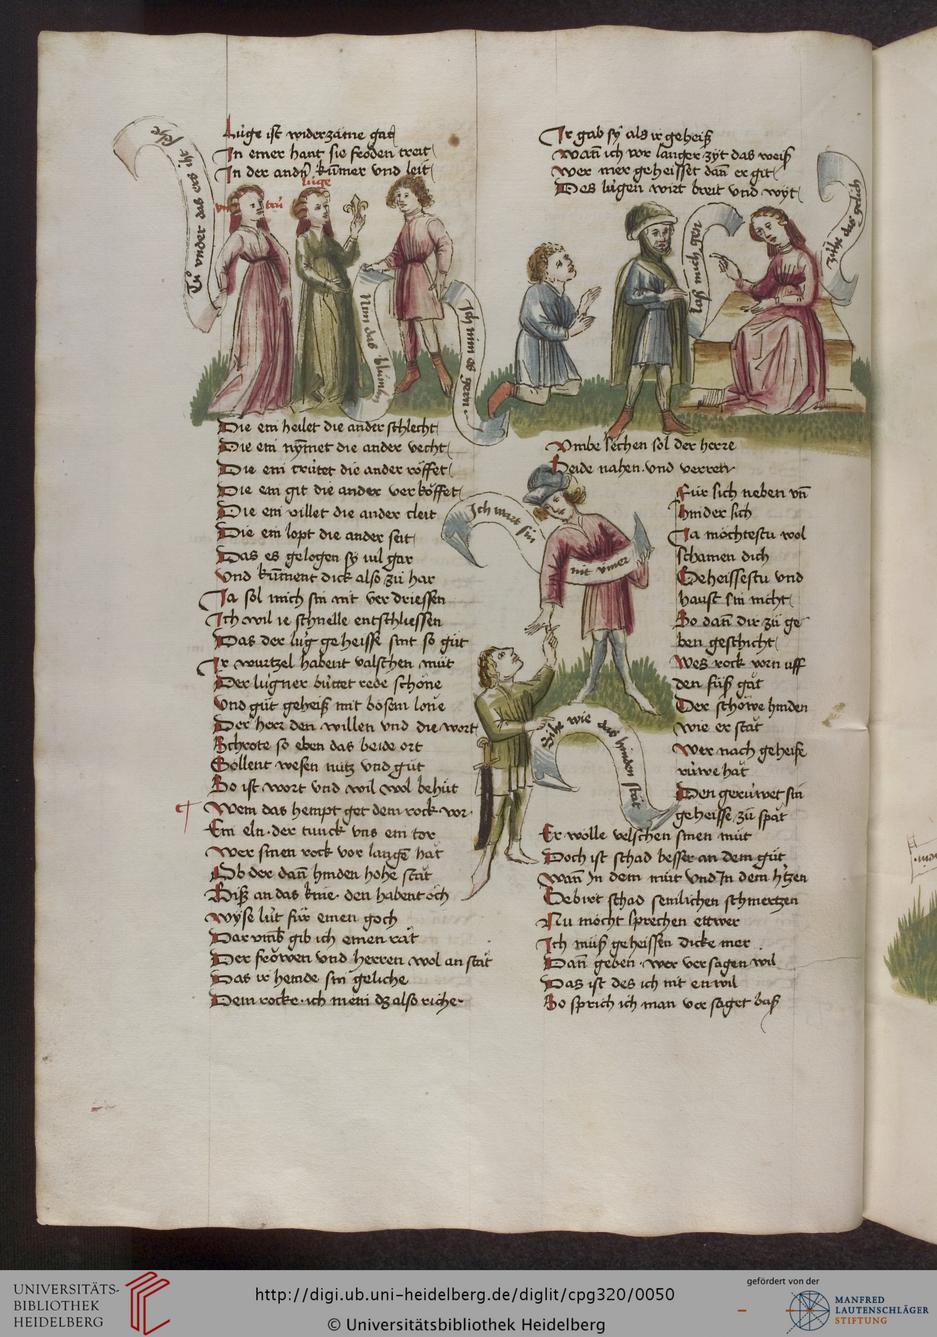 Luge ist widerzäme gar
In einer hant sie froͤden treit
In der andn̄ kum̄er vnd leit
luge
vn trü
Tuͦ vnder das ers iht
Nim das blümlin
Ich nim es gern
Die ein heilet die ander schlecht
Die ein nÿmet die ander vecht
Die ein trütet die ander roͤffet
Die ein git die ander verkoͤffet
Die ein villet die ander cleit
Die ein lopt die ander seit
Das es gelogen sÿ vil gar
Vnd kum̄ent dick also zuͦ har
Ja sol mich sin nit verdriessen
Ich wil ie schnelle entschliessen
Das der lug geheisse sint so guͦt
Ir wurtzel habent valschen muͦt
Der lugner buttet rede schöne
Vnd guͦt geheiß mit bosem lone
Der herr den willen vnd die wort
Schrote so eben das beide ort
Sollent wesen nütz vnd guͦt
So ist wort vnd wil wol behuͦt
Wem das hempt get dem rock vor
Ein eln der tunck vns ein tor
Wer sinen rock vor langē hat
Ob der dañ hinden hohe stat
Biß an das knie den habent och
Wÿse lüt für einen goch
Dar vmb gib ich einen rat
Der froͤwen vnd herren wol an stat
Das ir hemde sin geliche
Dem rocke ich mein dz also riche
Ir gab sÿ als ir geheiß
Wañ ich vor langer zÿt das weiß
Wer mer geheisset dañ er git
Des lugen wirt breit vnd wÿt
laß mich gen
zühe das gelich
Vmbe sechen sol der herre
Beide nahen vnd verren
Ich wart sin
nit ÿmer
Sihe wie das hinden stat
Für sich neben vñ
hinder sich
Ja möchtestu wol
schamen dich
Geheissestu vnd
hast sin nicht
So dañ dir zuͦ ge
ben geschicht
Wes rock vorn vff
den fuͦß gat
Der schoͤwe hinden
wie er stat
Wer nach geheise
rüwe hat
Den gerüwet sin
geheisse zuͦ spat
Er wolle velschen sinen muͦt
Doch ist schad besser an dem guͦt
Wañ In dem muͦt vnd In dem h'tzen
Gebirt schad semlichen schmertzen
Nu möcht sprechen ettwer
Ich muͦß geheissen dicke mer
Dañ geben wer versagen wil
Das ist des ich nit en wil
So sprich ich man versaget baß
UNIVERSITÄTS-
BIBLIOTHEK
HEIDELBERG
http://digi.ub.uni-heidelberg.de/diglit/cpg320/0050
© Universitätsbibliothek Heidelberg
gefördert von der
MANFRED
LAUTENSCHLÄGER
STIFTUNG